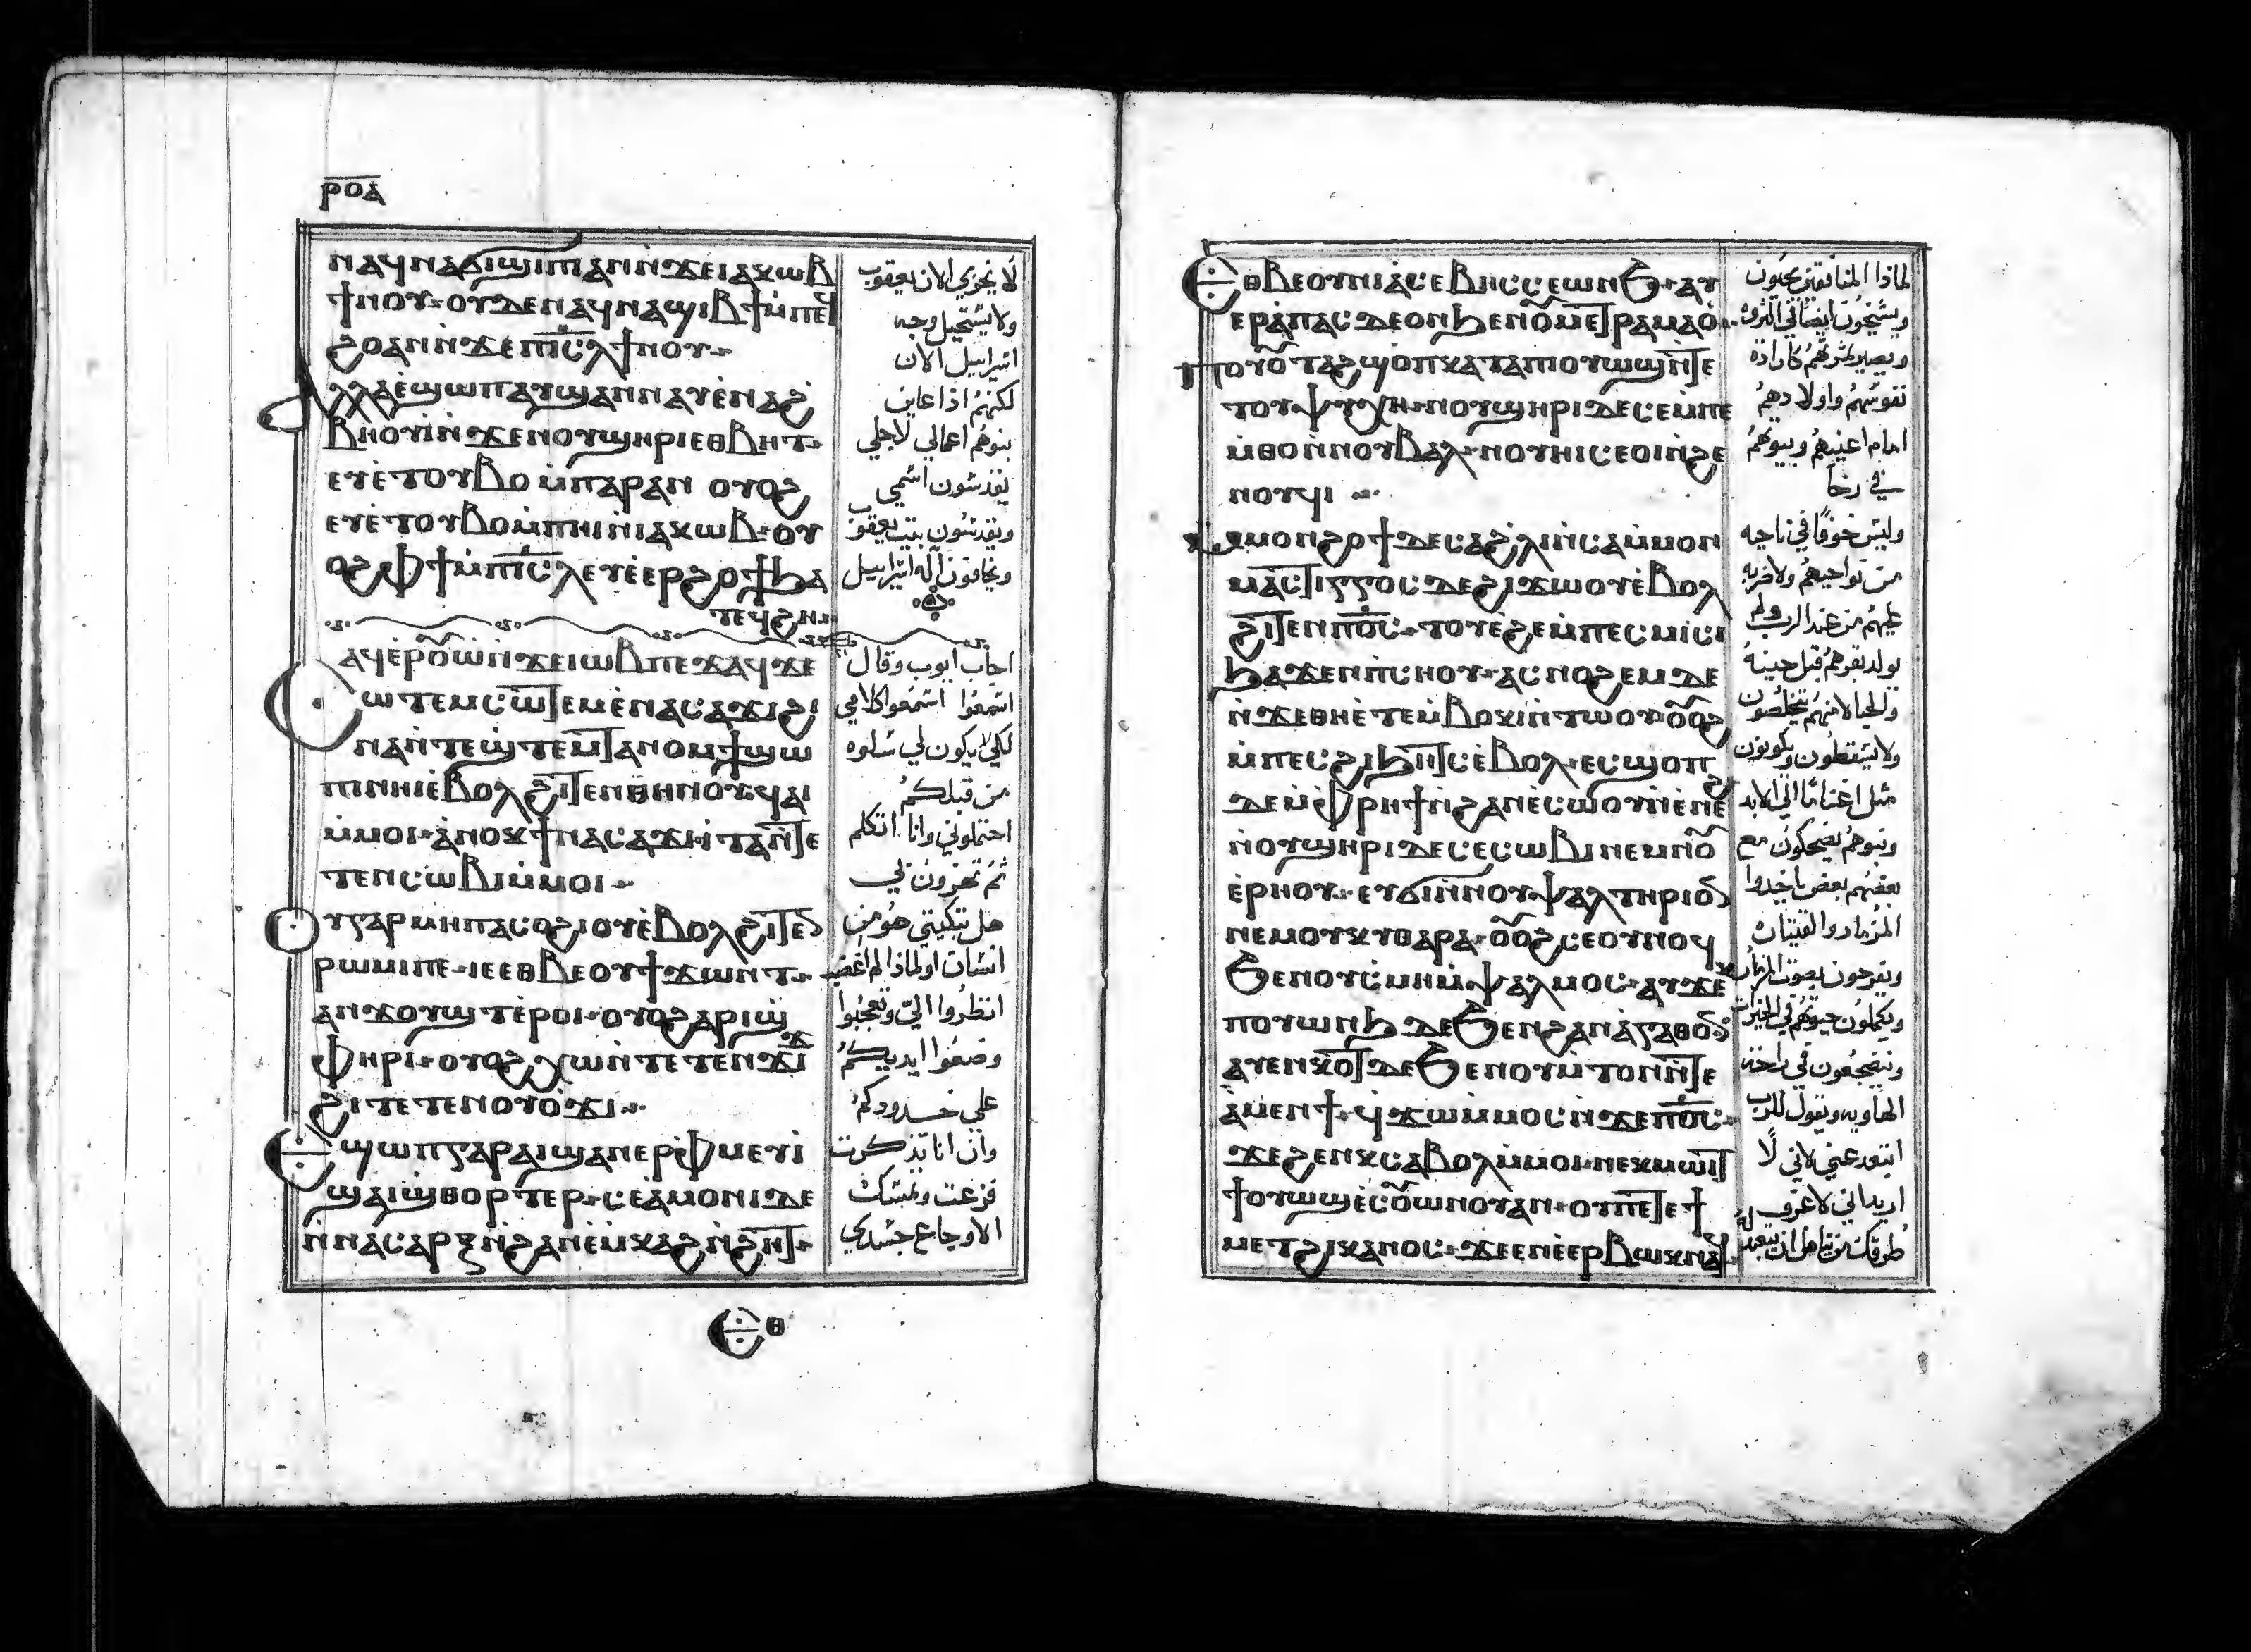 ⲣⲟⲁ
ⲛⲁϥⲛⲁϭⲓϣⲓⲡⲓ ⲁⲛ ⲛ̀ϫⲉ ⲓⲁⲕⲱⲃ
ϯⲛⲟⲩ· ⲟⲩⲇⲉ ⲛⲁϥⲛⲁϣⲓⲃϯ ⲙ̀ⲡⲉϥ
ϩⲟ ⲁⲛ ⲛ̀ϫⲉ ⲡⲓⲥ̅ⲗ ϯⲛⲟⲩ··
ⲁⲗⲗⲁ ⲉ̀ϣⲱⲡ ⲁⲩϣⲁⲛⲛⲁⲩ ⲉ̀ⲛⲁϩ
ⲃⲏⲟⲩⲓ̀ ⲛ̀ϫⲉ ⲛⲟⲩϣⲏⲣⲓ ⲉⲑⲃⲏⲧ··
ⲉⲩⲉ̀ⲧⲟⲩⲃⲟ ⲙ̀ⲡⲁⲣⲁⲛ ⲟⲩⲟϩ
ⲉⲩⲉ̀ⲧⲟⲩⲃⲟ ⲙ̀ⲡⲏⲓ ⲛ̀ⲓⲁⲕⲱⲃ· ⲟⲩ
ⲟϩ ⲫϯ ⲙ̀ⲡⲓⲥ̅ⲗ ⲉⲩⲉ̀ⲉⲣϩⲟϯ ϧⲁ
ⲧⲉϥϩⲏ··
ⲁϥⲉ̀ⲣⲟⲩⲱ̀ ⲛ̀ϫⲉ ⲓⲱⲃ ⲡⲉϫⲁϥ ϫⲉ
ⲥⲱⲧⲉⲙ ⲥⲱⲧⲉⲙ ⲉ̀ⲛⲁⲥⲁϫⲓ ϩⲓ
ⲛⲁ ⲛ̀ⲧⲉϣⲧⲉⲙⲧⲁⲛⲟⲙϯ ϣⲱ
ⲡⲓ ⲛⲏⲓ ⲉ̀ⲃⲟⲗ ϩⲓⲧⲉⲛ ⲑⲏⲛⲟⲩ· ϥⲁⲓ
ⲙ̀ⲙⲟⲓ· ⲁ̀ⲛⲟⲕ ϯⲛⲁⲥⲁϫⲓ· ⲓⲧⲁ ⲛ̀ⲧⲉ
ⲧⲉⲛⲥⲱⲃⲓ ⲙ̀ⲙⲟⲓ··
ⲟⲩⲅⲁⲣ ⲙⲏ ⲡⲁⲥⲟϩⲓ ⲟⲩⲉ̀ⲃⲟⲗ ϩⲓⲧⲉⲛ
ⲣⲱⲙⲓ ⲡⲉ· ⲓⲉ ⲉⲑⲃⲉⲟⲩ ϯϫⲱⲛⲧ··
ⲁⲛ ϫⲟⲩϣⲧ ⲉ̀ⲣⲟⲓ· ⲟⲩⲟϩ ⲁⲣⲓϣ
ⲫⲏⲣⲓ· ⲟⲩⲟϩ ⲭⲱ ⲛ̀ⲧⲉⲧⲉⲛϫⲓϫ
ϩⲓ ⲧⲉⲧⲉⲛⲟⲩⲟ̀ϫⲓ··
ⲉϣⲱⲡ ⲅⲁⲣ ⲁⲓϣⲁⲛⲉⲣⲫ̀ⲙⲉⲩⲓ̀
ϣⲁⲓϣⲑⲟⲣⲧⲉⲣ· ⲥⲉⲁ̀ⲙⲟⲛⲓ ⲇⲉ
ⲛ̀ⲛⲁⲥⲁⲣⲝ ⲛ̀ϩⲁⲛⲉ̀ⲙⲕⲁϩ ⲛ̀ϩⲏⲧ·
لا يخزي الان يعقوب
ولا يستحيل وجه
اسراييل الان
لكنهم اذا عاين
بنوهم اعمالي لاجلي
يقدسون اسمي
ويقدسون بيت يعقوب
ويخافون اله اسراييل
اجاب ايوب وقال
اسمعوا اسمعوا كلامي
لكي لا يكون لي سلوه
من قبلكم
احتملوني وانا اتكلم
ثم تهزون بي
هل تبكيتي هو من
انسان او لماذا لم اغضب
انظروا الي وتعجبوا
وضعوا ايديكم
على خدودكم
وان انا تذكرت
فزعت وتمسك
الاوجاع جسدي
ⲉⲑ
ⲉⲑⲃⲉⲟⲩ ⲛⲓⲁ̀ⲥⲉⲃⲏⲥ ⲥⲉⲱⲛϧ· ⲁⲩ
ⲉⲣⲁ̀ⲡⲁⲥ ⲇⲉ ⲟⲛ ϧⲉⲛ ⲟⲩⲙⲉⲧⲣⲁⲙⲁⲟ̀··
ⲡⲟⲩⲟ̀ⲧⲁϩ ϣⲟⲡ ⲕⲁⲧⲁ ⲡⲟⲩⲱϣ ⲛ̀ⲧⲉ
ⲧⲟⲩⲯⲩⲭⲏ· ⲛⲟⲩϣⲏⲣⲓ ⲇⲉ ⲥⲉⲙⲡⲉ
ⲙ̀ⲑⲟ ⲛ̀ⲛⲟⲩⲃⲁⲗ· ⲛⲟⲩⲏⲓ ⲥⲉⲟⲓ ⲛ̀ϩⲉ
ⲛⲟⲩϥⲓ ··
ⲙ̀ⲙⲟⲛ ϩⲟϯ ⲇⲉ ⲥⲁϩⲗⲓ ⲛ̀ⲥⲁ ⲙ̀ⲙⲟⲛ
ⲙⲁⲥⲧⲓⲅⲅⲟⲥ ⲇⲉ ϩⲓϫⲱⲟⲩ ⲉ̀ⲃⲟⲗ
ϩⲓⲧⲉⲛ ⲡⲟ̅ⲥ̅· ⲧⲟⲩⲉ̀ϩⲉ ⲙ̀ⲡⲉⲥⲙⲓⲥⲓ
ϧⲁϫⲉⲛ ⲡ̀ⲥⲛⲟⲩ· ⲁⲥⲛⲟϩⲉⲙ ⲇⲉ
ⲛ̀ϫⲉ ⲑⲏⲉ̀ⲧⲉⲙⲃⲟⲕⲓ ⲛ̀ⲧⲱⲟⲩ· ⲟⲩⲟϩ
ⲙ̀ⲡⲉⲥϩⲓ ϧⲏⲧⲥ ⲉ̀ⲃⲟⲗ· ⲉⲥϣⲟⲡ
ⲇⲉ ⲙ̀ⲫⲣⲏϯ ⲛ̀ϩⲁⲛⲉ̀ⲥⲱⲟⲩ ⲛ̀ⲉ̀ⲛⲉϩ
ⲛ̀ⲟⲩϣⲏⲣⲓ ⲇⲉ ⲥⲉⲥⲱⲃⲓ ⲛⲉⲙ ⲛⲟⲩ
ⲉ̀ⲣⲏⲟⲩ·· ⲉⲩϭⲓ ⲛ̀ⲛⲟⲩⲯⲁⲗⲧⲏⲣⲓⲟⲛ
ⲛⲉⲙ ⲟⲩⲕⲩⲑⲁⲣⲁ· ⲟⲩⲟϩ ⲥⲉⲟⲩⲛⲟϥ
ϧⲉⲛ ⲟⲩⲥⲙⲏ ⲙ̀ⲯⲁⲗⲙⲟⲥ· ⲁⲩϫⲉⲕ
ⲡⲟⲩⲱⲛϧ ⲇⲉ ϧⲉⲛ ϩⲁⲛⲁ̀ⲅⲁⲑⲟⲛ
ⲁⲩⲉⲛⲕⲟⲧ ⲇⲉ ϧⲉⲛ ⲟⲩⲙ̀ⲧⲟⲛ ⲛ̀ⲧⲉ
ⲁ̀ⲙⲉⲛϯ· ϥϫⲱ ⲙ̀ⲙⲟⲥ ⲛ̀ϫⲉ ⲡⲟ̅ⲥ̅··
ϫⲉ ϩⲉⲛⲕ ⲥⲁⲃⲟⲗ ⲙ̀ⲙⲟⲓ· ⲛⲉⲕⲙⲱⲓⲧ
ϯⲟⲩⲱϣ ⲉ̀ⲥⲟⲩⲱⲛⲟⲩ ⲁⲛ· ⲟⲩ ⲡⲉⲧⲉ ϯ
ⲙⲉⲧϩⲓⲕⲁⲛⲟⲥ· ϫⲉ ⲉⲛⲉ̀ⲉⲣⲃⲱⲕ ⲛⲁϥ·
لماذا المنافقين يحيون
ويشيخون ايضا في الثروه
ويصير ثمرتهم كارادة
نفوسهم واولادهم
امام اعينهم وبيوتهم
في رخا
وليس خوفا في ناحيه
من نواحيهم ولا ضربه
عليهم من عند الرب ولم
يولد بقرهم قبل حينه
والحبالا منهم يتخلصون
ولا يسقطون ويكونون
مثل اغناما الي الابد
وبنوهم يضحكون مع
بعضهم بعض ياخدوا
المزمار والقيتاره
ويفرحون بصوت المزمار
ويكملون حيوتهم في الخيرات
ويضجعون في راحة
الهاويه ويقول للرب
ابتعد عني لاني لا
اريد اني لا اعرف
طرقك من يتاهل ان نتعبد له